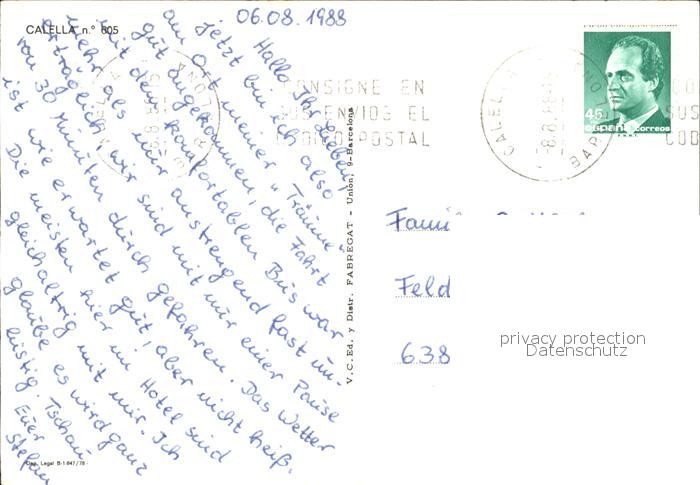 CALELLA n.º 605
06.08.1988
Hallo Ihr Lieben!
jetzt bin ich also
am Ort meiner "Träume"
gut angekommen, die Fahrt
mit dem komfortablen Bus war
mehr als nur anstrengend fast un-
erträglich wir sind mit nur einer Pause
von 30 Minuten durch gefahren. Das Wetter
ist wie erwartet gut, aber nicht heiß.
Die meisten hier im Hotel sind
gleichaltrig mit mir. Ich
glaube es wird ganz
lustig. Tschau
Euer
Stefan
Dep. Legal B-1.647/76
V.C. Ed. y Distr. FABREGAT - Unión, 9-Barcelona
CONSIGNE EN
SUS ENVIOS EL
CODIGO POSTAL
CALELLA
BARCELONA
CO
SUS
COD
45
España correos
F.N.M.T.
Fami
Feld
638
privacy protection
Datenschutz